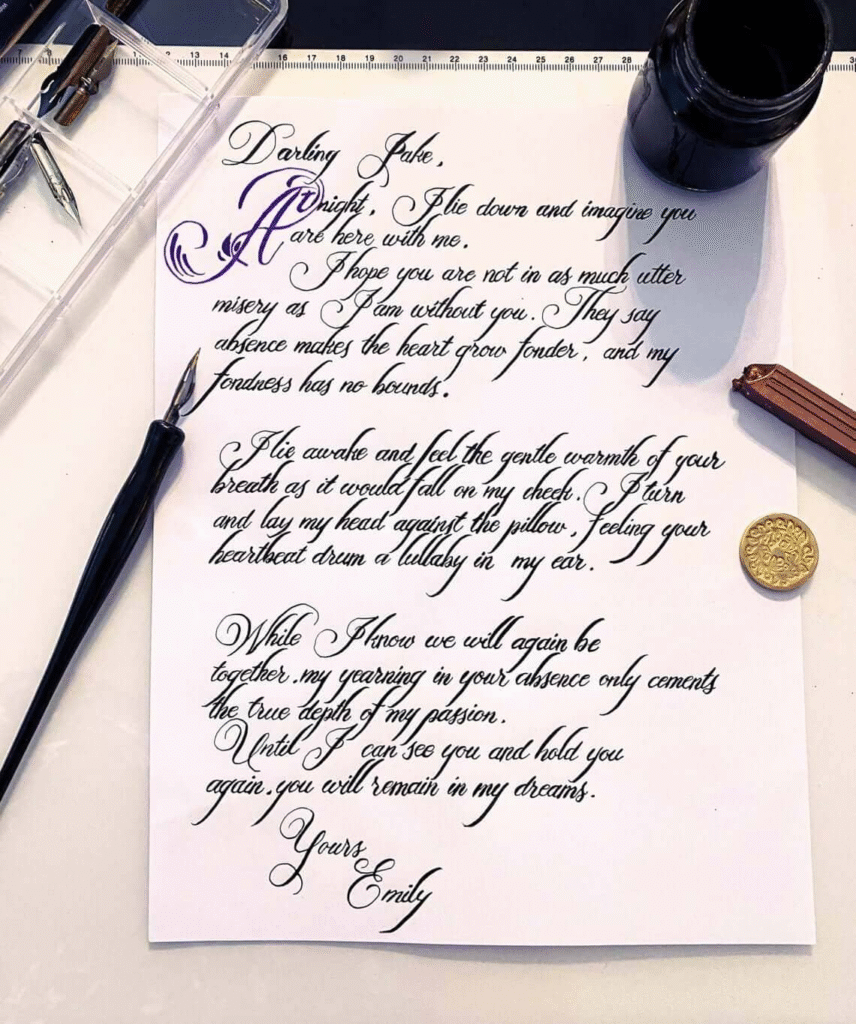 7 8 12 13 14 16 17 18 19 20 21 22 23 24 25 26 27 28
Darling Jake,
At night, I lie down and imagine you
are here with me.
I hope you are not in as much utter
misery as I am without you. They say
absence makes the heart grow fonder, and my
fondness has no bounds.
I lie awake and feel the gentle warmth of your
breath as it would fall on my cheek. I turn
and lay my head against the pillow, feeling your
heartbeat drum a lullaby in my ear.
While I know we will again be
together, my yearning in your absence only cements
the true depth of my passion.
Until I can see you and hold you
again, you will remain in my dreams.
Yours,
Emily